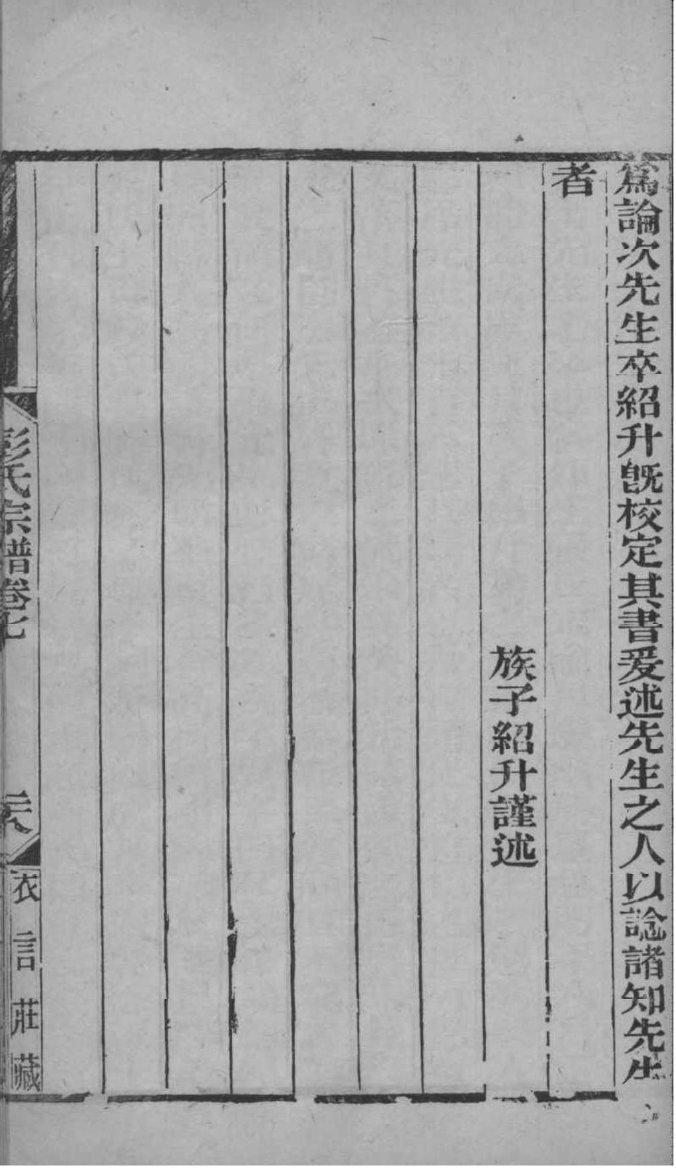 爲論次先生卒紹升旣校定其書爰述先生之人以諗諸知先生
者
族子紹升謹述
彭氏宗譜卷七
衣言莊藏